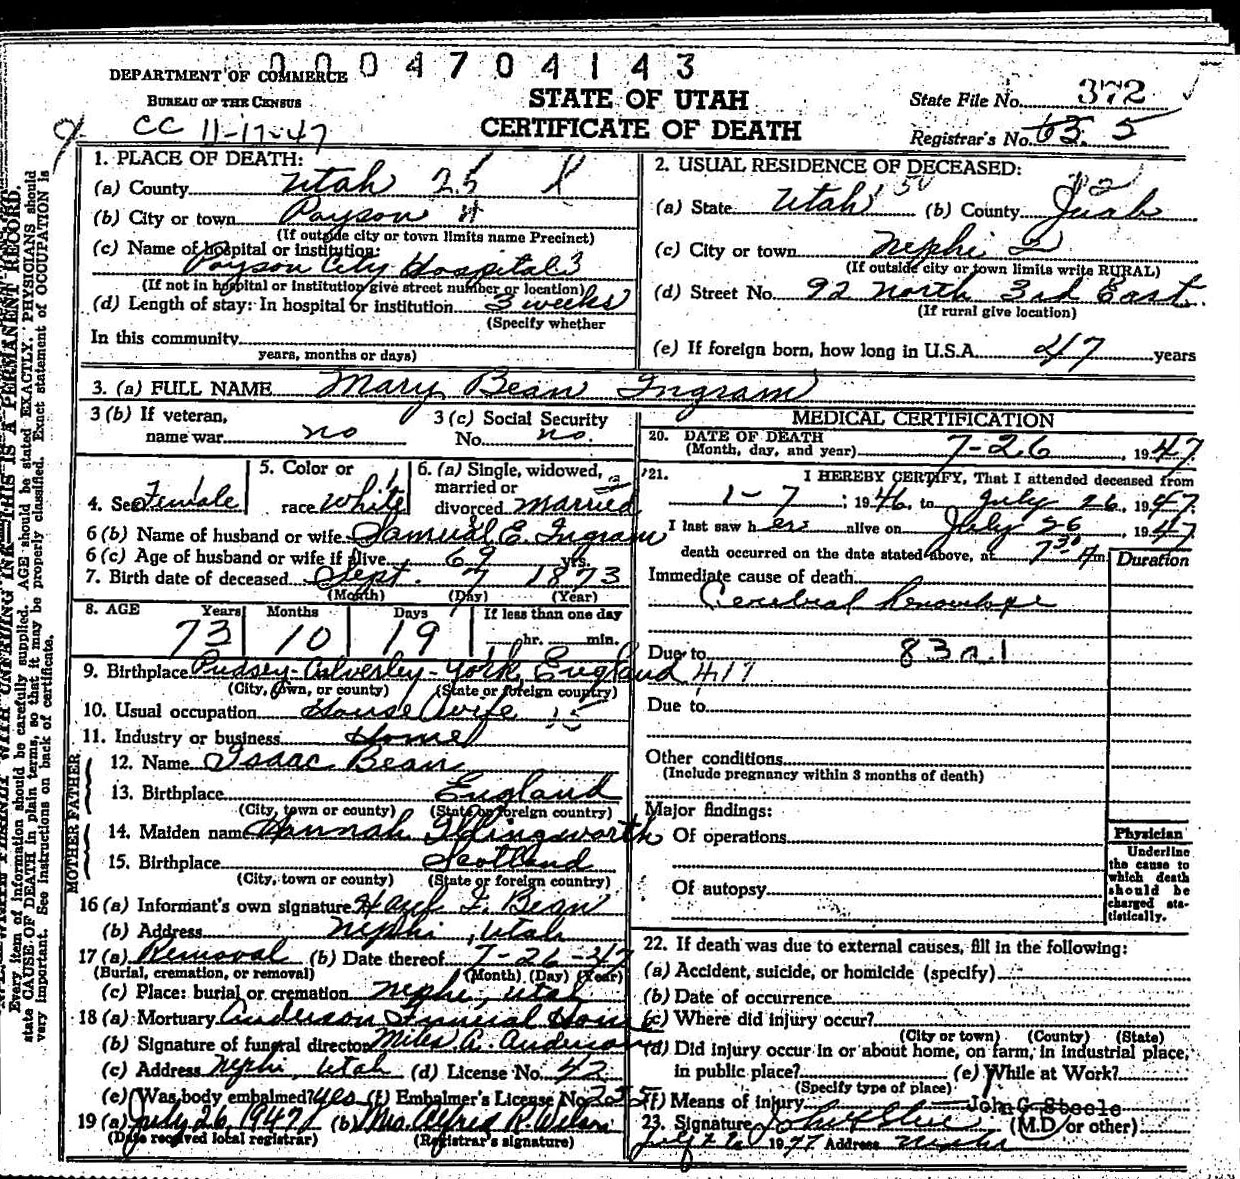 0004704143
DEPARTMENT OF COMMERCE
BUREAU OF THE CENSUS
CC 11-17-47
STATE OF UTAH
CERTIFICATE OF DEATH
State File No. 372
Registrar's No. 63. 5
1. PLACE OF DEATH:
(a) County Utah 25
(b) City or town Payson
(If outside city or town limits name Precinct)
(c) Name of hospital or institution:
Payson City Hospital 3
(If not in hospital or institution give street number or location)
(d) Length of stay: In hospital or institution 3 weeks
(Specify whether
In this community
years, months or days)
2. USUAL RESIDENCE OF DECEASED:
(a) State Utah (b) County Juab
(c) City or town Nephi 2
(If outside city or town limits write RURAL)
(d) Street No. 92 North 3rd East
(If rural give location)
(e) If foreign born, how long in U.S.A. 47 years
3. (a) FULL NAME Mary Bean Ingram
3 (b) If veteran, name war no
3 (c) Social Security No. no.
4. Sex Female
5. Color or race White
6. (a) Single, widowed, married or divorced married
6 (b) Name of husband or wife Samuel E. Ingram
6 (c) Age of husband or wife if alive 69 yrs.
7. Birth date of deceased Sept. 7 1873
(Month) (Day) (Year)
8. AGE Years Months Days If less than one day
73 10 19 hr. min.
9. Birthplace Pudsey-Calverley-York, England 417
(City, town, or county) (State or foreign country)
10. Usual occupation House wife
11. Industry or business Home
FATHER
12. Name Isaac Bean
13. Birthplace England
(City, town or county) (State or foreign country)
MOTHER
14. Maiden name Hannah Illingsworth
15. Birthplace Scotland
(City, town or county) (State or foreign country)
16 (a) Informant's own signature F. Bean
(b) Address Nephi, Utah
17 (a) Removal (b) Date thereof 7-26-47
(Burial, cremation, or removal) (Month) (Day) (Year)
(c) Place: burial or cremation Nephi, Utah
18 (a) Mortuary Anderson Funeral Home
(b) Signature of funeral director Miles A. Anderson
(c) Address Nephi, Utah (d) License No. 42
(e) Was body embalmed? yes (f) Embalmer's License No. 255
19 (a) July 26, 1947 (b) Mrs. Alfred R. Wilson
(Date received local registrar) (Registrar's signature)
MEDICAL CERTIFICATION
20. DATE OF DEATH
(Month, day, and year) 7-26, 1947
21. I HEREBY CERTIFY, That I attended deceased from
1-7, 1946, to July 26, 1947.
I last saw her alive on July 26, 1947
death occurred on the date stated above, at 7:30 A m.
Duration
Immediate cause of death
Cerebral hemorrhage
Due to 83a.1
Due to
Other conditions
(Include pregnancy within 3 months of death)
Major findings:
Of operations
Of autopsy
Physician
Underline
the cause to
which death
should be
charged sta-
tistically.
22. If death was due to external causes, fill in the following:
(a) Accident, suicide, or homicide (specify)
(b) Date of occurrence
(c) Where did injury occur?
(City or town) (County) (State)
(d) Did injury occur in or about home, on farm, in industrial place,
in public place? (e) While at Work?
(Specify type of place)
(f) Means of injury John G Steele
23. Signature (M.D. or other)
1947 Address Nephi
THIS IS A PERMANENT RECORD.
Every item of information should be carefully supplied. AGE should be stated EXACTLY. PHYSICIANS should
state CAUSE OF DEATH in plain terms, so that it may be properly classified. Exact statement of OCCUPATION is
very important. See instructions on back of certificate.